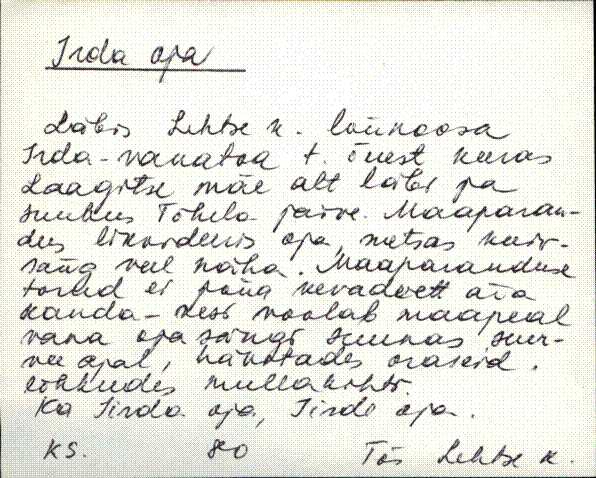 Irda oja
Läbis Lehtse k. lõunaosa
Irda-vanatoa t. õuest keeras
Laagitse mäe alt läbi ja
suubus Tõhela järve. Maaparan-
dus likvideeris oja, metsas kuiv-
säng veel näha. Maaparanduse
torud ei jõua kevadvett ära
kanda - vesi voolab maapeal
vana oja sängi suunas suur-
vee ajal, hävitades oraseid,
lõhkudes mullakihti.
Ka Iirda oja, Iirde oja.
KS. 80 Tõs Lehtse k.